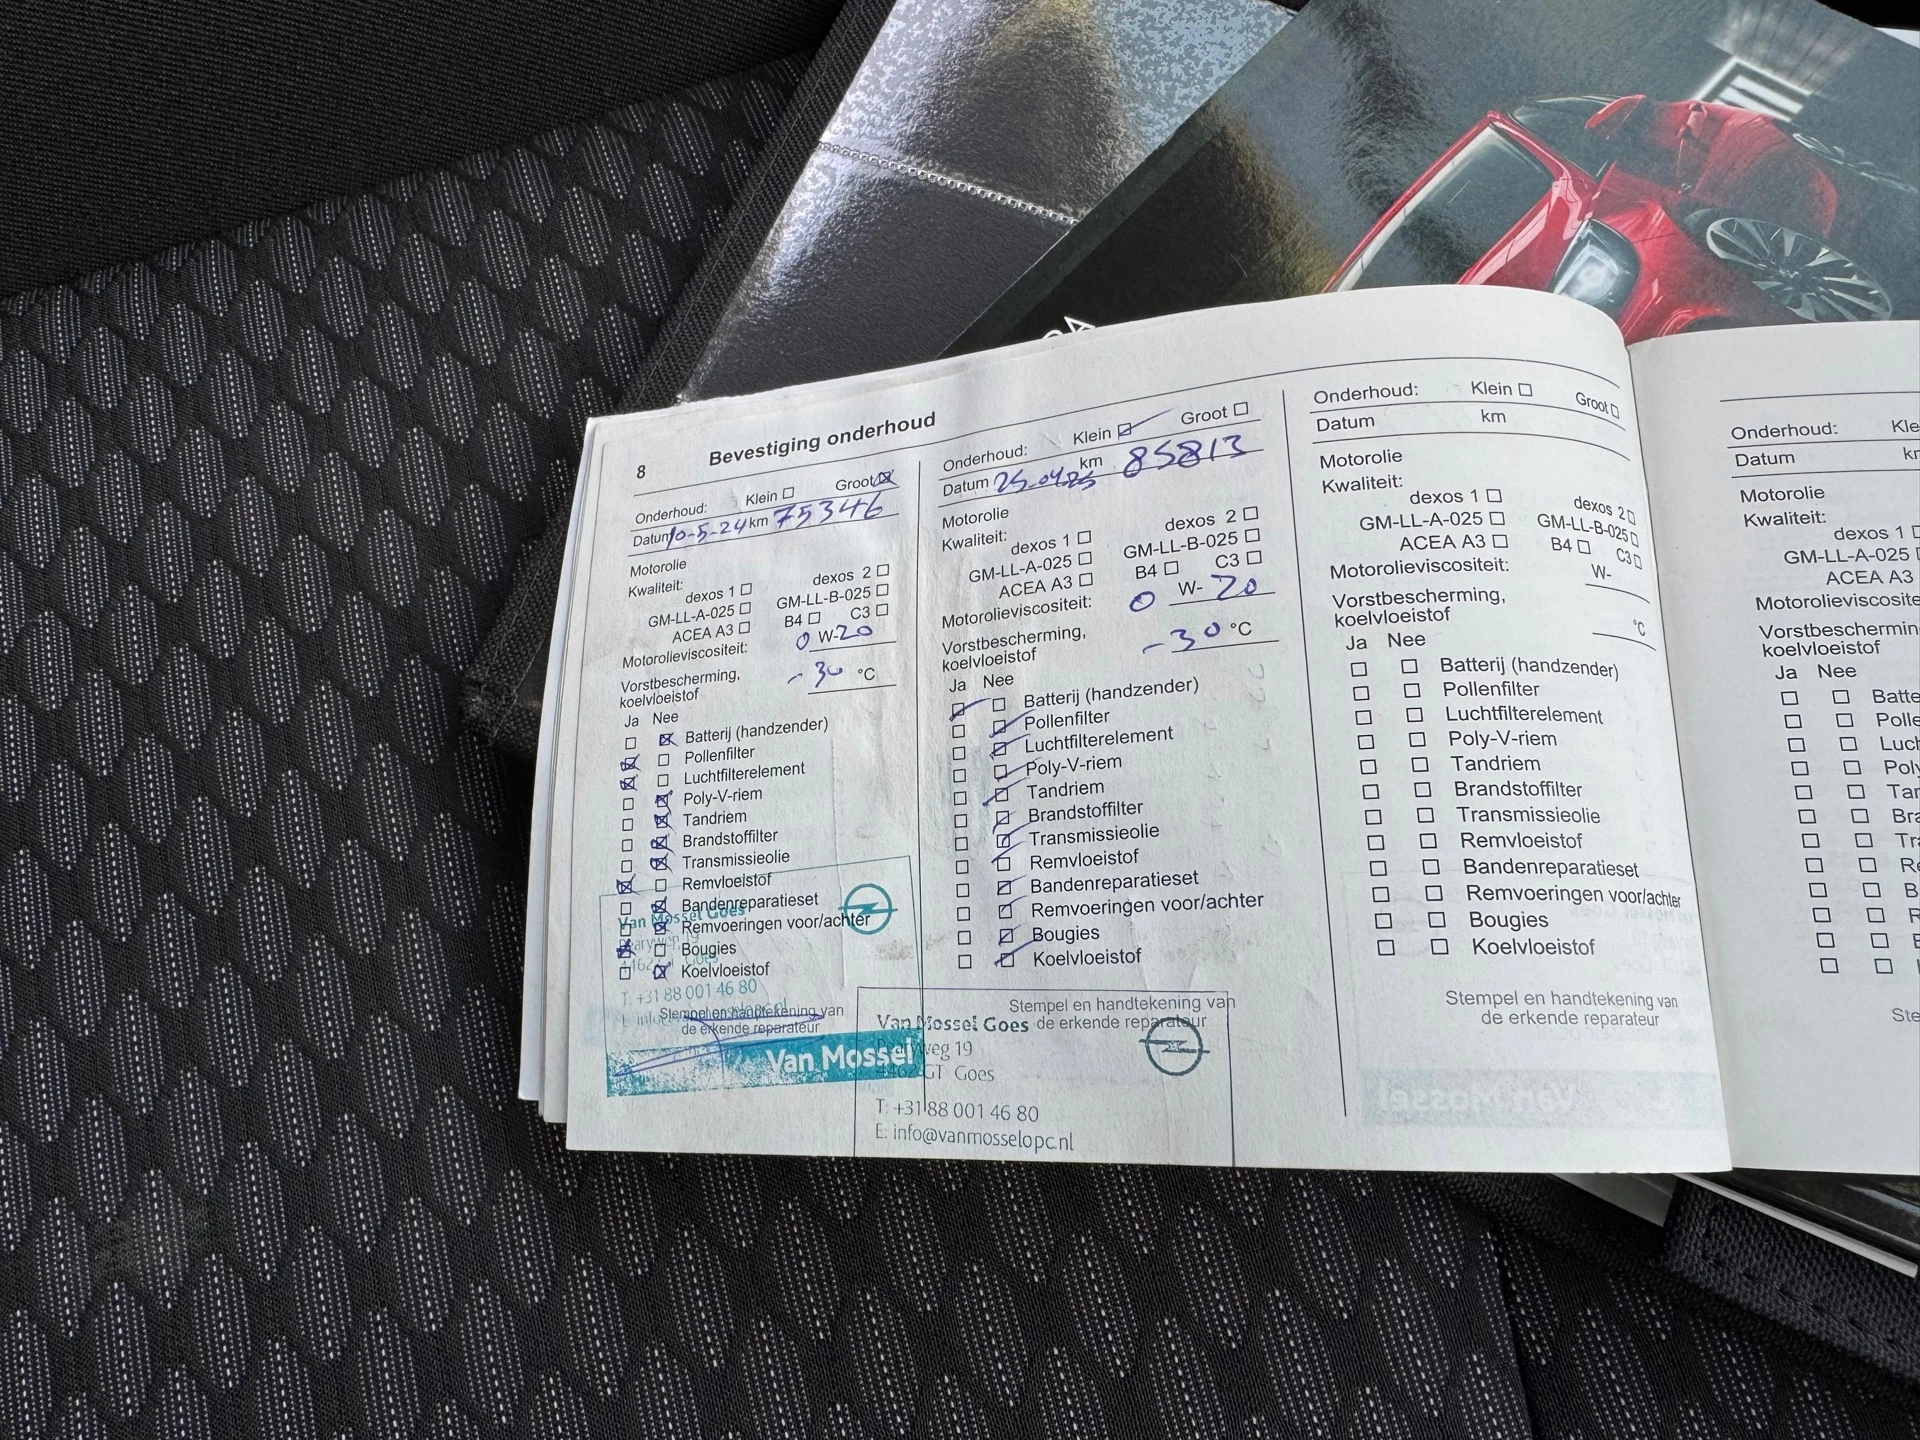 8 Bevestiging onderhoud
Onderhoud: Klein Groot
Datum 10-5-24 km 75346
Motorolie
Kwaliteit:
dexos 1 dexos 2
GM-LL-A-025 GM-LL-B-025
ACEA A3 B4 C3
Motorolieviscositeit: 0 W-20
Vorstbescherming,
koelvloeistof -30 °C
Ja Nee
Batterij (handzender)
Pollenfilter
Luchtfilterelement
Poly-V-riem
Tandriem
Brandstoffilter
Transmissieolie
Remvloeistof
Bandenreparatieset
Van Mossel Goes
Remvoeringen voor/achter
Bougies
Koelvloeistof
T: +31 88 001 46 80
Stempel en handtekening van
de erkende reparateur
Van Mossel
Onderhoud: Klein Groot
Datum 25.04.25 km 85813
Motorolie
Kwaliteit:
dexos 1 dexos 2
GM-LL-A-025 GM-LL-B-025
ACEA A3 B4 C3
Motorolieviscositeit: 0 W-20
Vorstbescherming,
koelvloeistof -30 °C
Ja Nee
Batterij (handzender)
Pollenfilter
Luchtfilterelement
Poly-V-riem
Tandriem
Brandstoffilter
Transmissieolie
Remvloeistof
Bandenreparatieset
Remvoeringen voor/achter
Bougies
Koelvloeistof
Stempel en handtekening van
de erkende reparateur
Van Mossel Goes
19
4462 GT Goes
T: +31 88 001 46 80
E: info@vanmosselopc.nl
Onderhoud: Klein Groot
Datum km
Motorolie
Kwaliteit:
dexos 1 dexos 2
GM-LL-A-025 GM-LL-B-025
ACEA A3 B4 C3
Motorolieviscositeit: W-
Vorstbescherming,
koelvloeistof °C
Ja Nee
Batterij (handzender)
Pollenfilter
Luchtfilterelement
Poly-V-riem
Tandriem
Brandstoffilter
Transmissieolie
Remvloeistof
Bandenreparatieset
Remvoeringen voor/achter
Bougies
Koelvloeistof
Stempel en handtekening van
de erkende reparateur
Onderhoud: Kle
Datum
Motorolie
Kwaliteit:
dexos 1
GM-LL-A-025
ACEA A3
Motorolieviscosite
Vorstbescherming
koelvloeistof
Ja Nee
Batte
Polle
Luch
Poly
Tar
Bra
Tr
Re
B
R
Ste